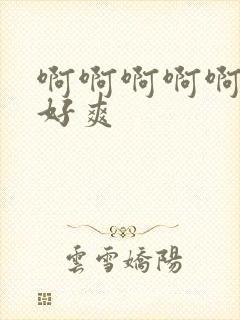 啊啊啊啊啊
好爽
雲雪嬌陽